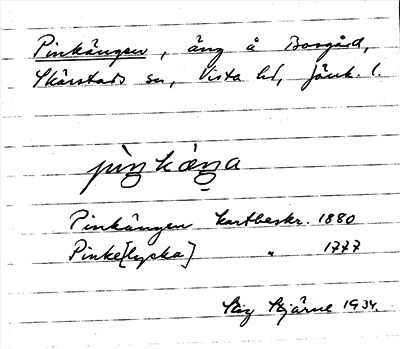 Pinkängen, äng å Bosgård,
Skärstads sn, Vista hd, Jönk. l.
pìŋkæŋa
Pinkängen kartbeskr. 1880
Pinke[lycka] " 1777
Stig Stjärne 1934.